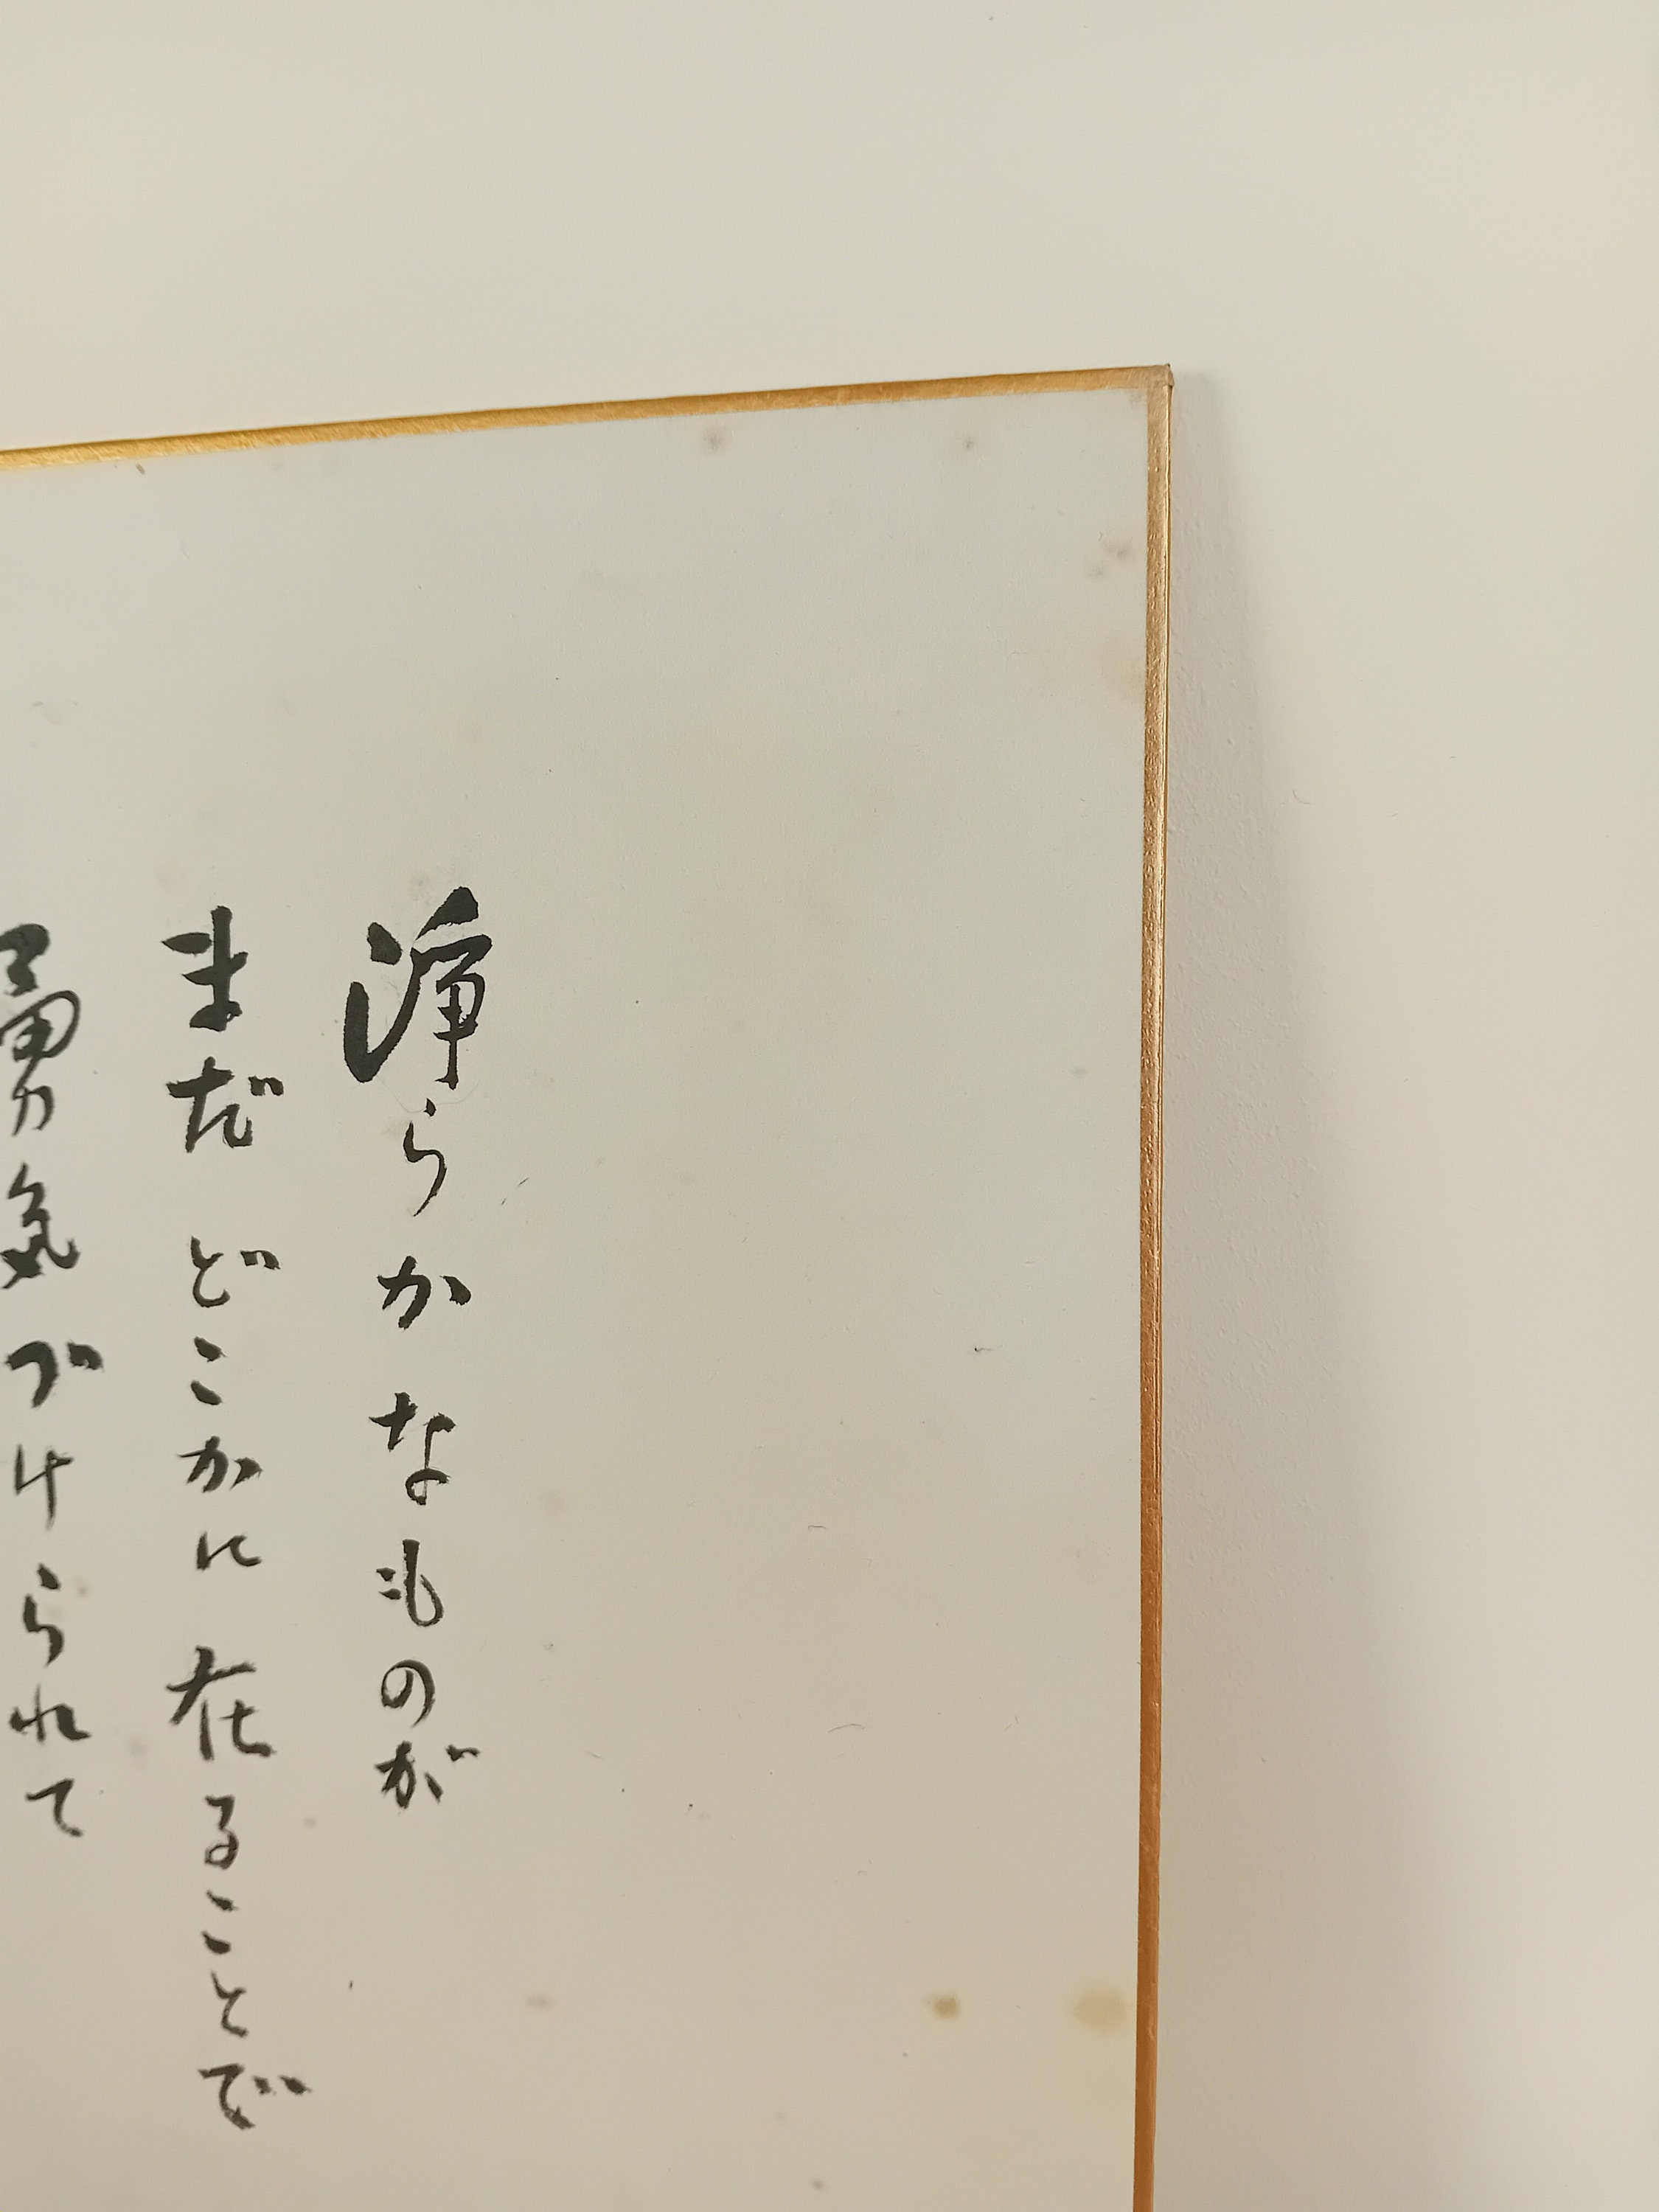 浄らかなものが
まだ どこかに 在ることで
勇気づけられて